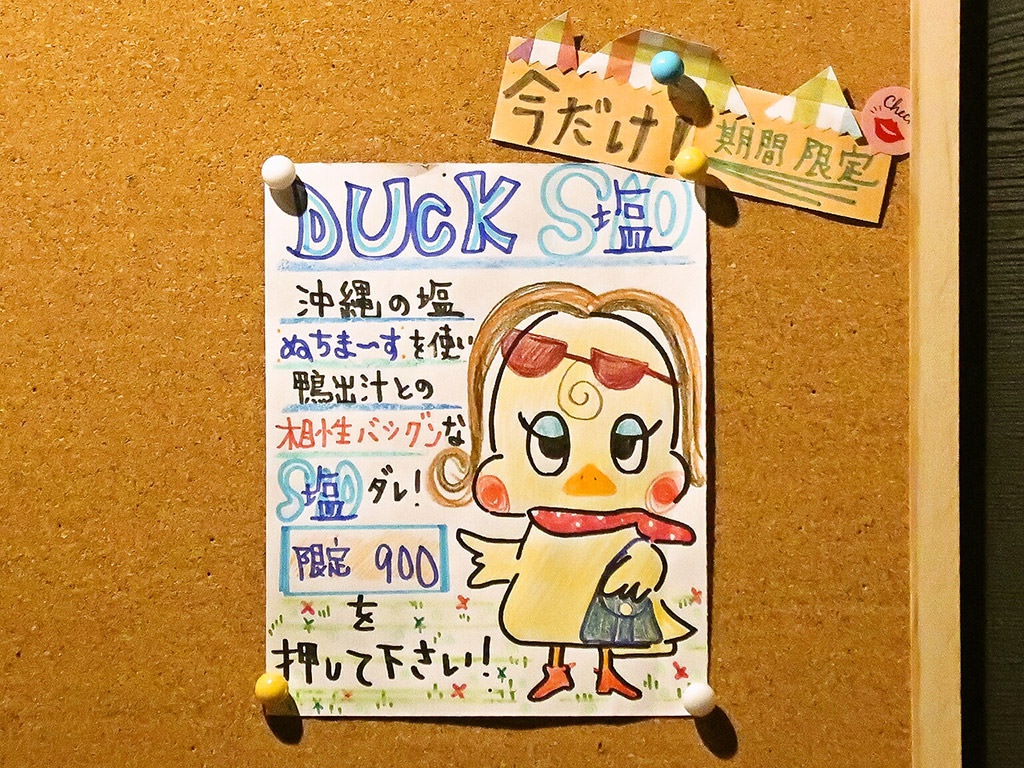 今だけ! 期間限定
Chec
DUCK S塩O
沖縄の塩
ぬちまーすを使い
鴨出汁との
相性バツグンな
S塩Oダレ!
限定 900
を
押して下さい!